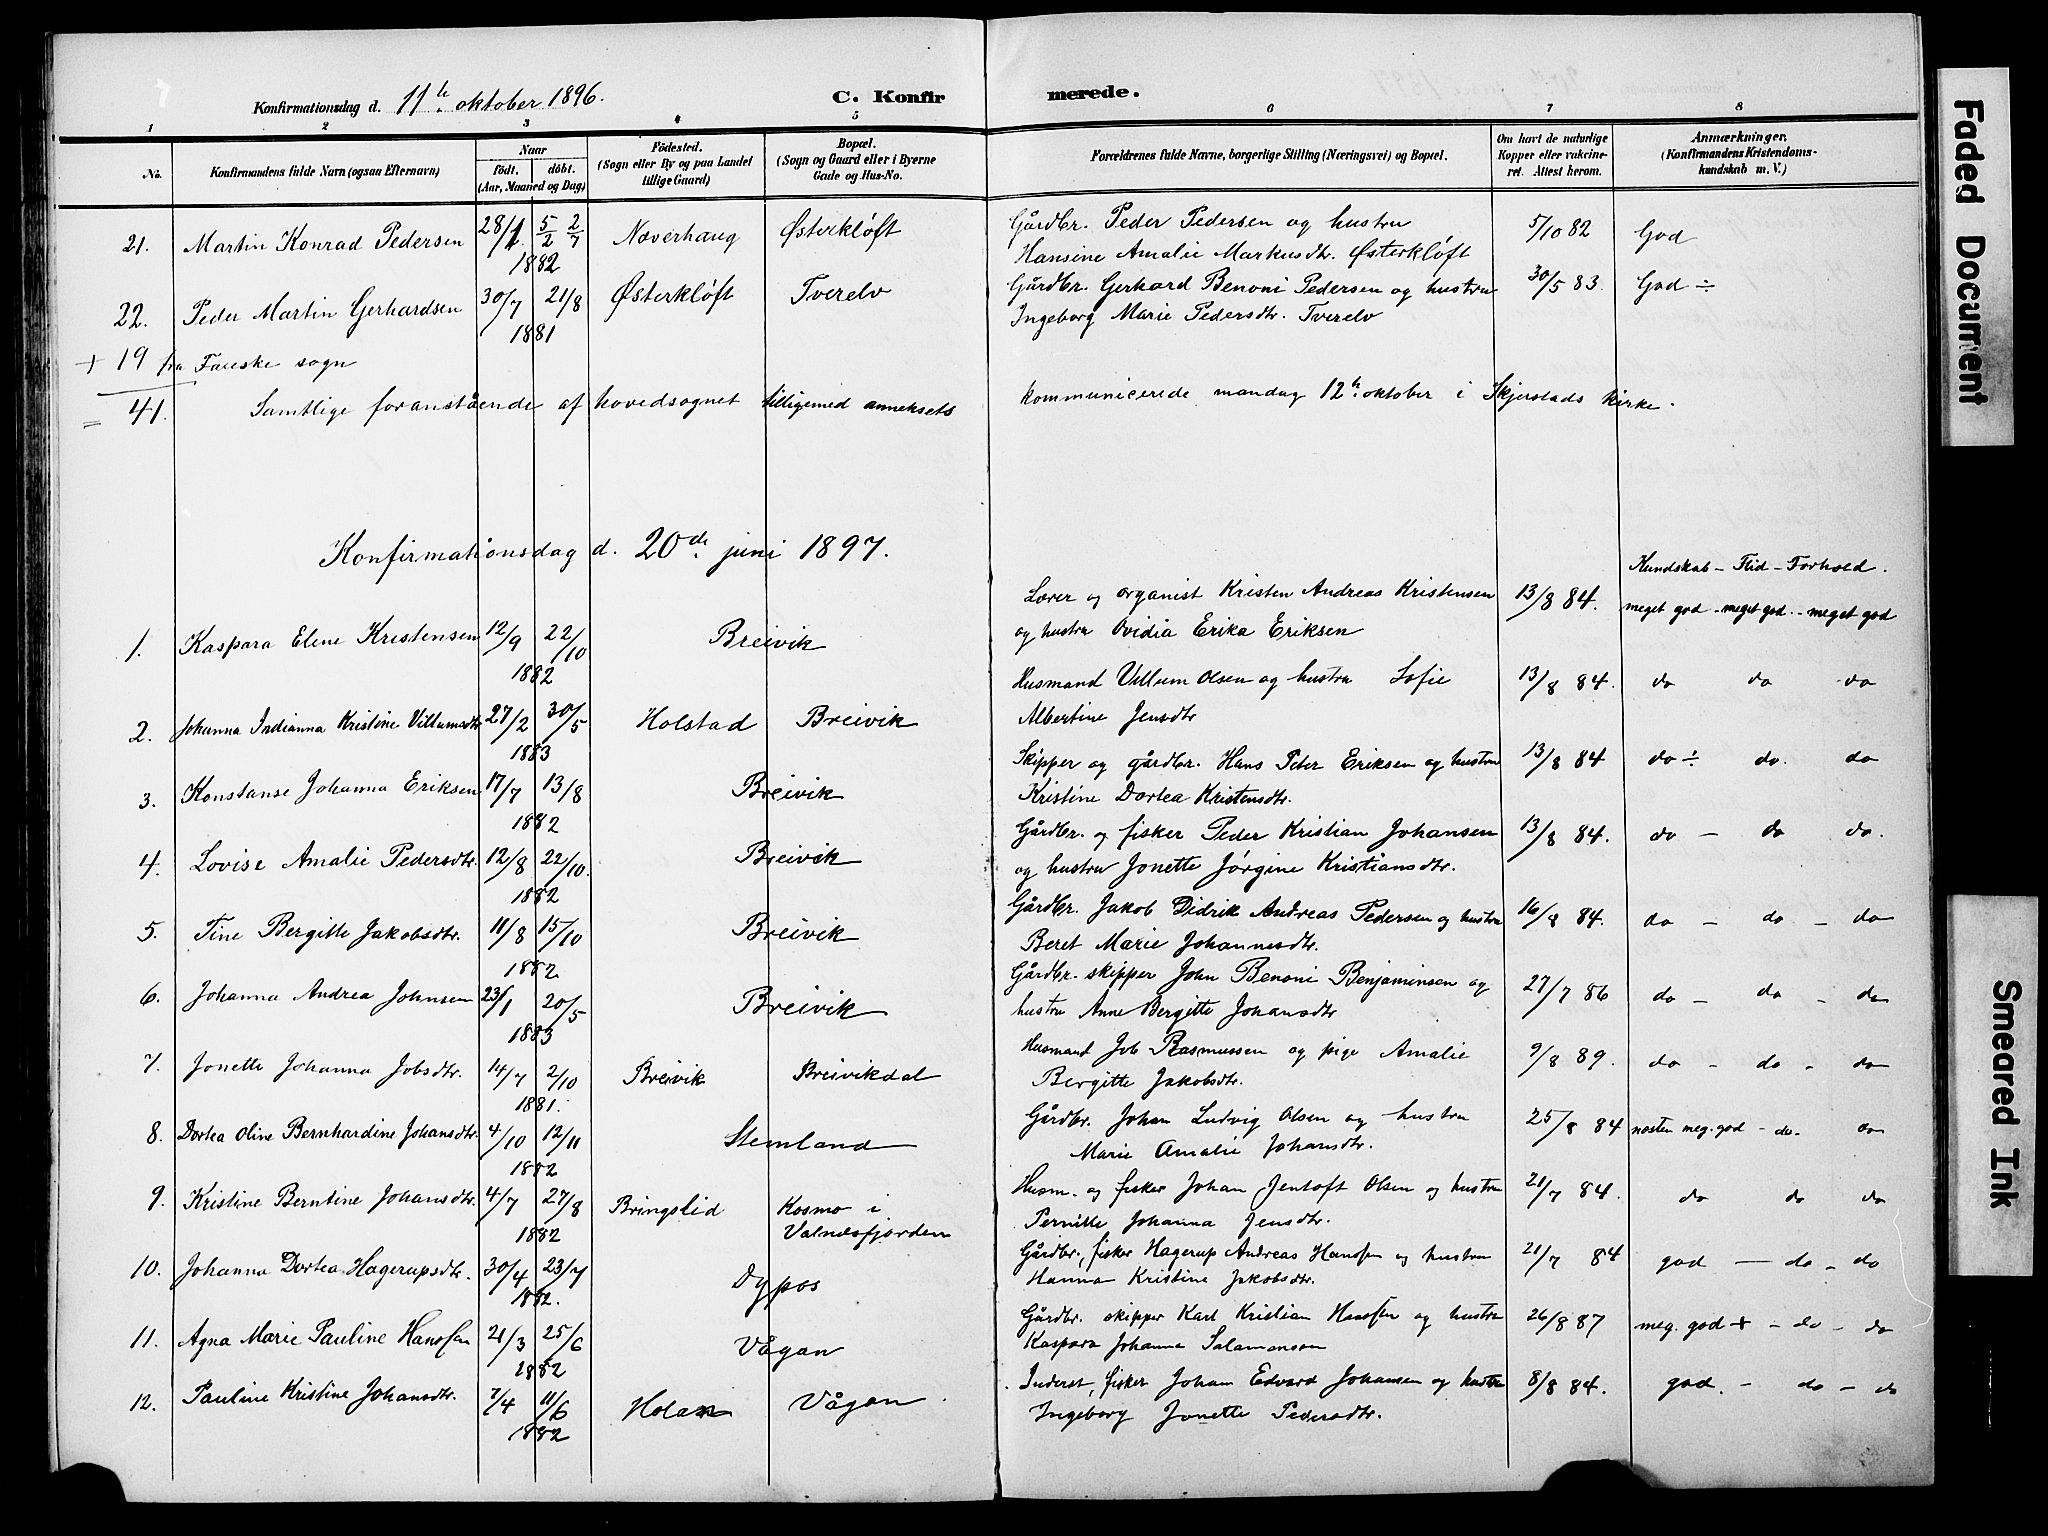 Konfirmationsdag d. 11te oktober 1896. C. Konfirmerede.
1 2 3 4 5 6 7 8
No. Konfirmandens fulde Navn (ogsaa Efternavn) Naar født. døbt. (Aar, Maaned og Dag) Fødested. (Sogn eller By og paa Landet tillige Gaard) Bopæl. (Sogn og Gaard eller i Byerne Gade og Hus-No. Forældrenes fulde Navne, borgerlige Stilling (Næringsvei) og Bopæl. Om havt de naturlige Kopper eller vakcineret. Attest herom. Anmærkninger. (Konfirmandens Kristendomskundskab m. V.)
21. Martin Konrad Pedersen 28/1. 5/2 2/7 1882 Næverhaug Østerkløft Gårdbr. Peder Pedersen og hustru 5/10 82 God
Hansine Amalie Markusdtr. Østerkløft
22. Peder Martin Gerhardsen 30/7 21/8 1881 Østerkløft Tverelv Gårdbr. Gerhard Benoni Pedersen og hustru 30/5 83. God ÷
Ingeborg Marie Pedersdtr. Tverelv
+ 19 fra Fauske sogn
= 41. Samtlige foranstående af hovedsognet tilligemed anneksets kommunicerede mandag 12te oktober i Skjerstads kirke.
Konfirmationsdag d. 20de juni 1897.
Kundskab – Flid – Forhold.
1. Kaspara Elene Kristensen 12/9 22/10 1882 Breivik Lærer og organist Kristen Andreas Kristensen 13/8 84. meget god - meget god. - meget god
og hustru Ovidia Erika Eriksen
2. Johanna Indianna Kristine Villumsdtr. 27/2 30/5 1883 Holstad Breivik Husmand Villum Olsen og hustru Sofie 13/8 84. do do do
Albertine Jensdtr
3. Konstanse Johanna Eriksen 17/7 13/8 1882 Breivik Skipper og gårdbr. Hans Peter Eriksen og hustru 13/8 84 do ÷ do. do
Kristine Dortea Kristensdtr.
4. Lovise Amalie Pedersdtr. 12/8 22/10. 1882 Breivik Gårdbr. og fisker Peder Kristian Johansen 13/8 84. do – do do.
og hustru Jonette Jörgine Kristiansdtr.
5. Tine Bergitte Jakobsdtr. 11/8 15/10 1882 Breivik Gårdbr. Jakob Didrik Andreas Pedersen og hustru 16/8 84. do – do – do
Beret Marie Johannesdtr.
6. Johanna Andrea Johnsen 23/1 20/5 1883 Breivik Gårdbr. skipper John Benoni Benjaminsen og 27/7 86 do – do – do
hustru Anne Bergitte Johansdtr
7. Jonette Johanna Jobsdtr. 14/7 2/10 1881. Breivik Breivikdal Husmand Job Rasmussen og pige Amalie 9/8 89. do – do – do
Bergitte Jakobsdtr.
8. Dortea Oline Bernhardine Johansdtr. 4/10 12/11 1882 Stemland Gårdbr. Johan Ludvig Olsen og hustru 25/8 84 næsten meg. god – do. do
Marie Amalie Johansdtr.
9. Kristine Berntine Johansdtr. 4/7 27/8 1882 Bringslid Kosmo i Valnæsfjorden Husm. og fisker Johan Jentoft Olsen og hustru 21/7 84. do do do
Pernille Johanna Jensdtr.
10. Johanna Dortea Hagerupsdtr. 30/4 23/7 1882. Dypos Gårdbr., fisker Hagerup Andreas Hansen og hustru 21/7 84 god – do – do
Hanna Kristine Jakobsdtr.
11. Agna Marie Pauline Hansen 21/3 25/6 1882 Vågan Gårdbr. skipper Karl Kristian Hansen og hustru 26/8 87 meg. god + – do – do
Kaspara Johanna Salamonsen
12. Pauline Kristine Johansdtr. 7/4 11/6 1882 Holan Vågan Inderst, fisker Johan Edvard Johansen og hustru 8/8 84. god. – do – do
Ingeborg Jonette Pedersdtr.
Faded Document
Smeared Ink